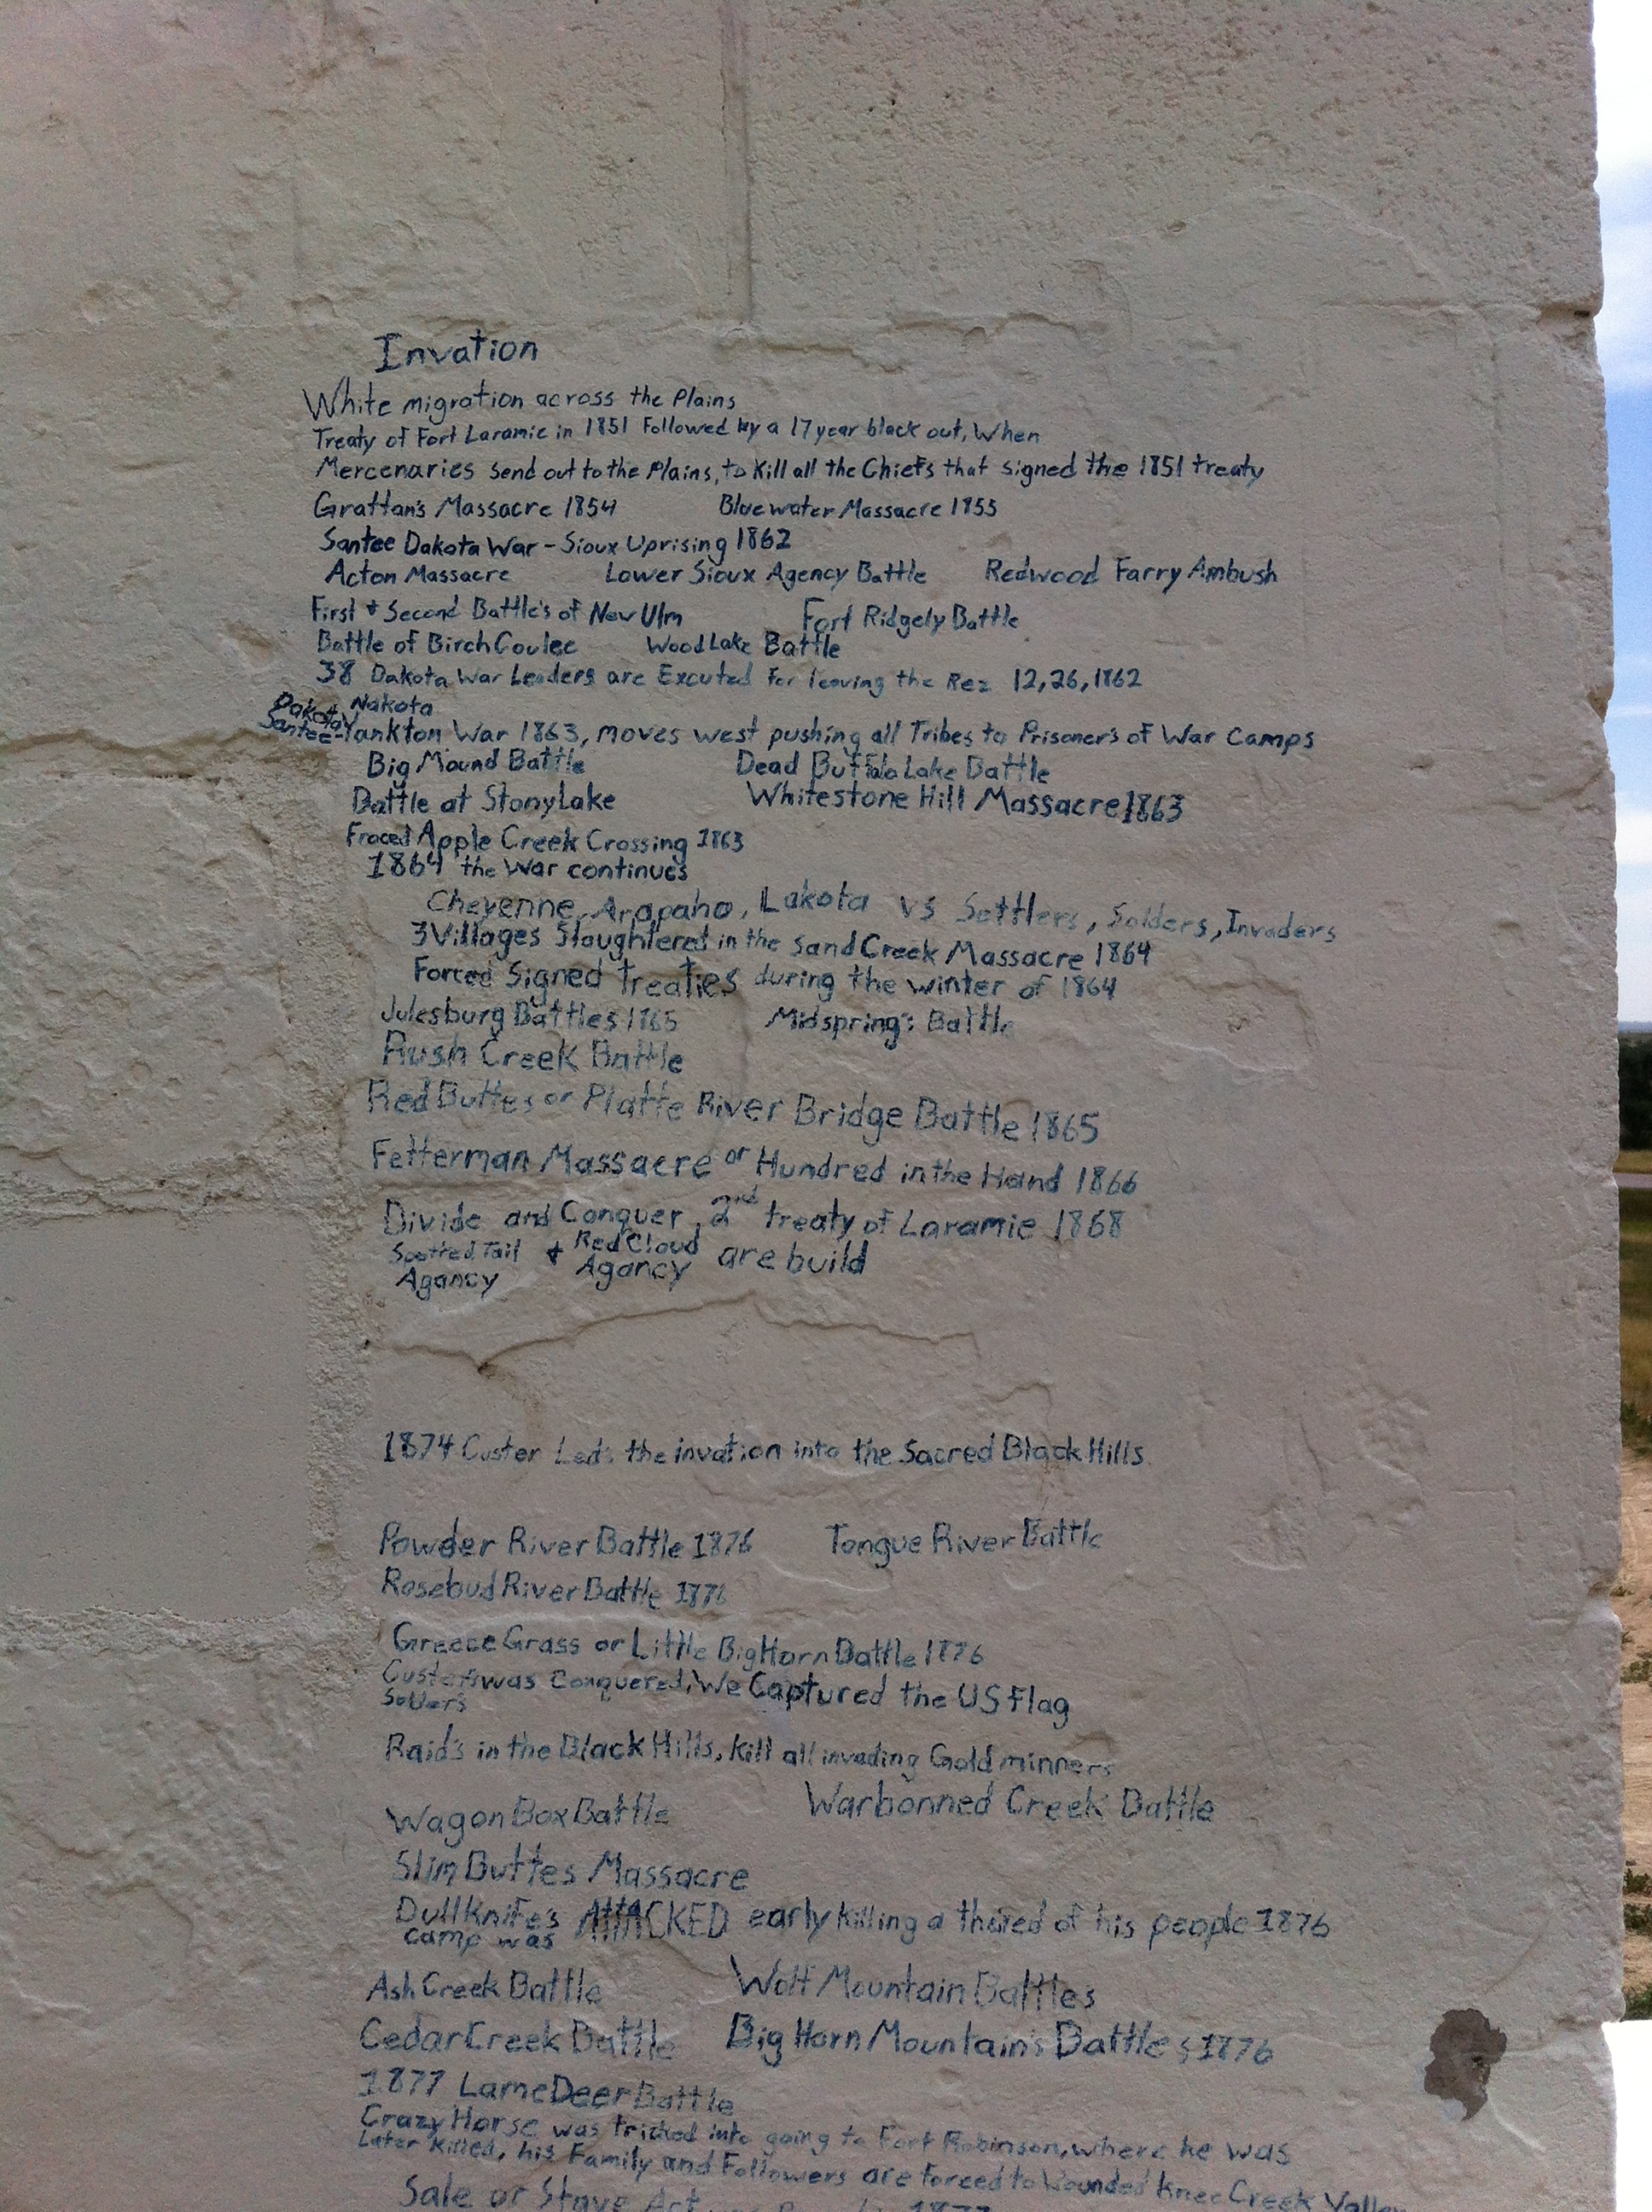 Invation
White migration across the Plains
Treaty of Fort Laramie in 1851 Followed by a 17 year black out, When
Mercenaries send out to the Plains, to Kill all the Chiefs that signed the 1851 treaty
Grattan's Massacre 1854 Bluewater Massacre 1855
Santee Dakota War - Sioux Uprising 1862
Acton Massacre Lower Sioux Agency Battle Redwood Farry Ambush
First + Second Battle's of New Ulm Fort Ridgely Battle
Battle of Birch Coulee Wood Lake Battle
38 Dakota War Leaders are Excuted For leaving the Rez 12,26,1862
Dakota, Nakota
Santee-Yankton War 1863, moves west pushing all Tribes to Prisoner's of War Camps
Big Mound Battle Dead Buffalo Lake Battle
Battle at Stony Lake Whitestone Hill Massacre 1863
Froced Apple Creek Crossing 1863
1864 the War continues
Cheyenne, Arapaho, Lakota VS Settlers, Solders, Invaders
3 Villages Slaughtered in the Sand Creek Massacre 1864
Forced Signed treaties during the winter of 1864
Julesburg Battles 1865 Midspring's Battle
Rush Creek Battle
Red Buttes or Platte River Bridge Battle 1865
Fetterman Massacre or Hundred in the Hand 1866
Divide and Conquer, 2nd treaty of Laramie 1868
Spotted Tail Agancy + Red Cloud Agancy are build
1874 Custer Led the invation into the Sacred Black Hills
Powder River Battle 1876 Tongue River Battle
Rosebud River Battle 1876
Greece Grass or Little Big Horn Battle 1876
Custer's was Conquered, We Captured the US Flag
Solder's
Raid's in the Black Hills, Kill all invading Gold minners
Wagon Box Battle Warbonned Creek Battle
Slim Buttes Massacre
Dull Knife's camp was ATTACKED early killing a thired of his people 1876
Ash Creek Battle Wolf Mountain Battles
Cedar Creek Battle Big Horn Mountain's Battles 1876
1877 Lame Deer Battle
Crazy Horse was tricked into going to Fort Robinson, where he was
Later Killed, his Family and Followers are forced to Wounded Knee Creek Valley
Sale or Starve Act 1877